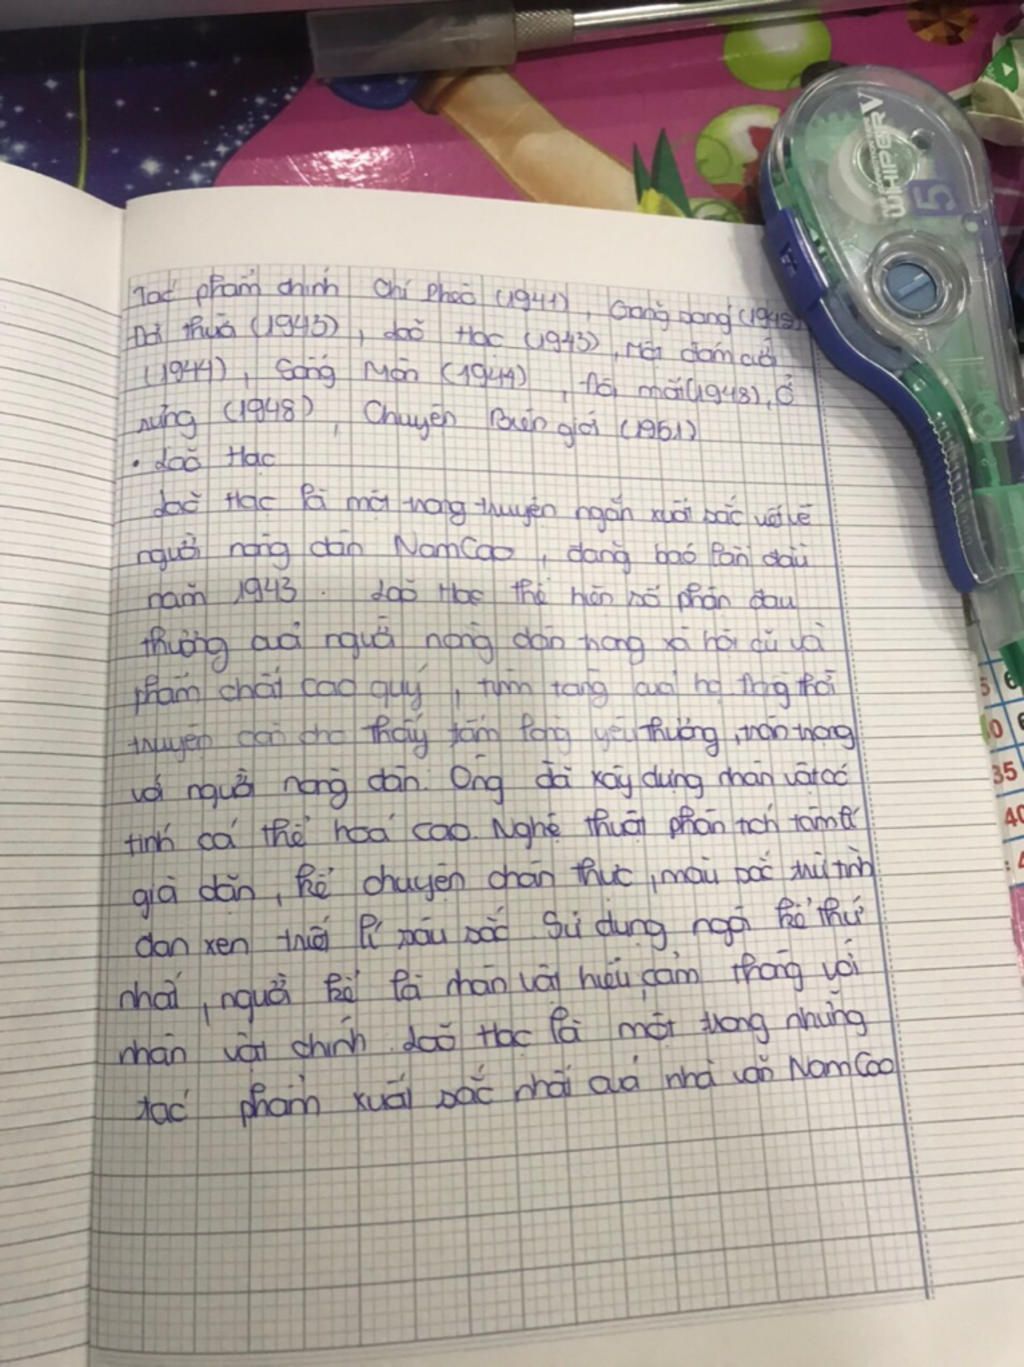 WHIPER V
5
Tác phẩm chính Chí Phèo (1941), Giăng sáng (1942)
Đời thừa (1943), Lão Hạc (1943), Một đám cưới
(1944), Sống Mòn (1944), Đôi mắt (1948), Ở
rừng (1948), Chuyện Biên giới (1951)
• Lão Hạc
Lão Hạc là một trong truyện ngắn xuất sắc viết về
người nông dân Nam Cao, đăng báo lần đầu
năm 1943. Lão Hạc thể hiện số phận đau
thương của người nông dân trong xã hội cũ và
phẩm chất cao quý, tiềm tàng của họ đồng thời
truyện còn cho thấy tấm lòng yêu thương, trân trọng
với người nông dân. Ông đã xây dựng nhân vật có
tính cá thể hoá cao. Nghệ thuật phân tích tâm lí
già dặn, kể chuyện chân thực, màu sắc trữ tình
đan xen triết lí sâu sắc Sử dụng ngôi kể thứ
nhất, người kể là nhân vật hiểu, cảm thông với
nhân vật chính. Lão Hạc là một trong những
tác phẩm xuất sắc nhất của nhà văn Nam Cao
35
40